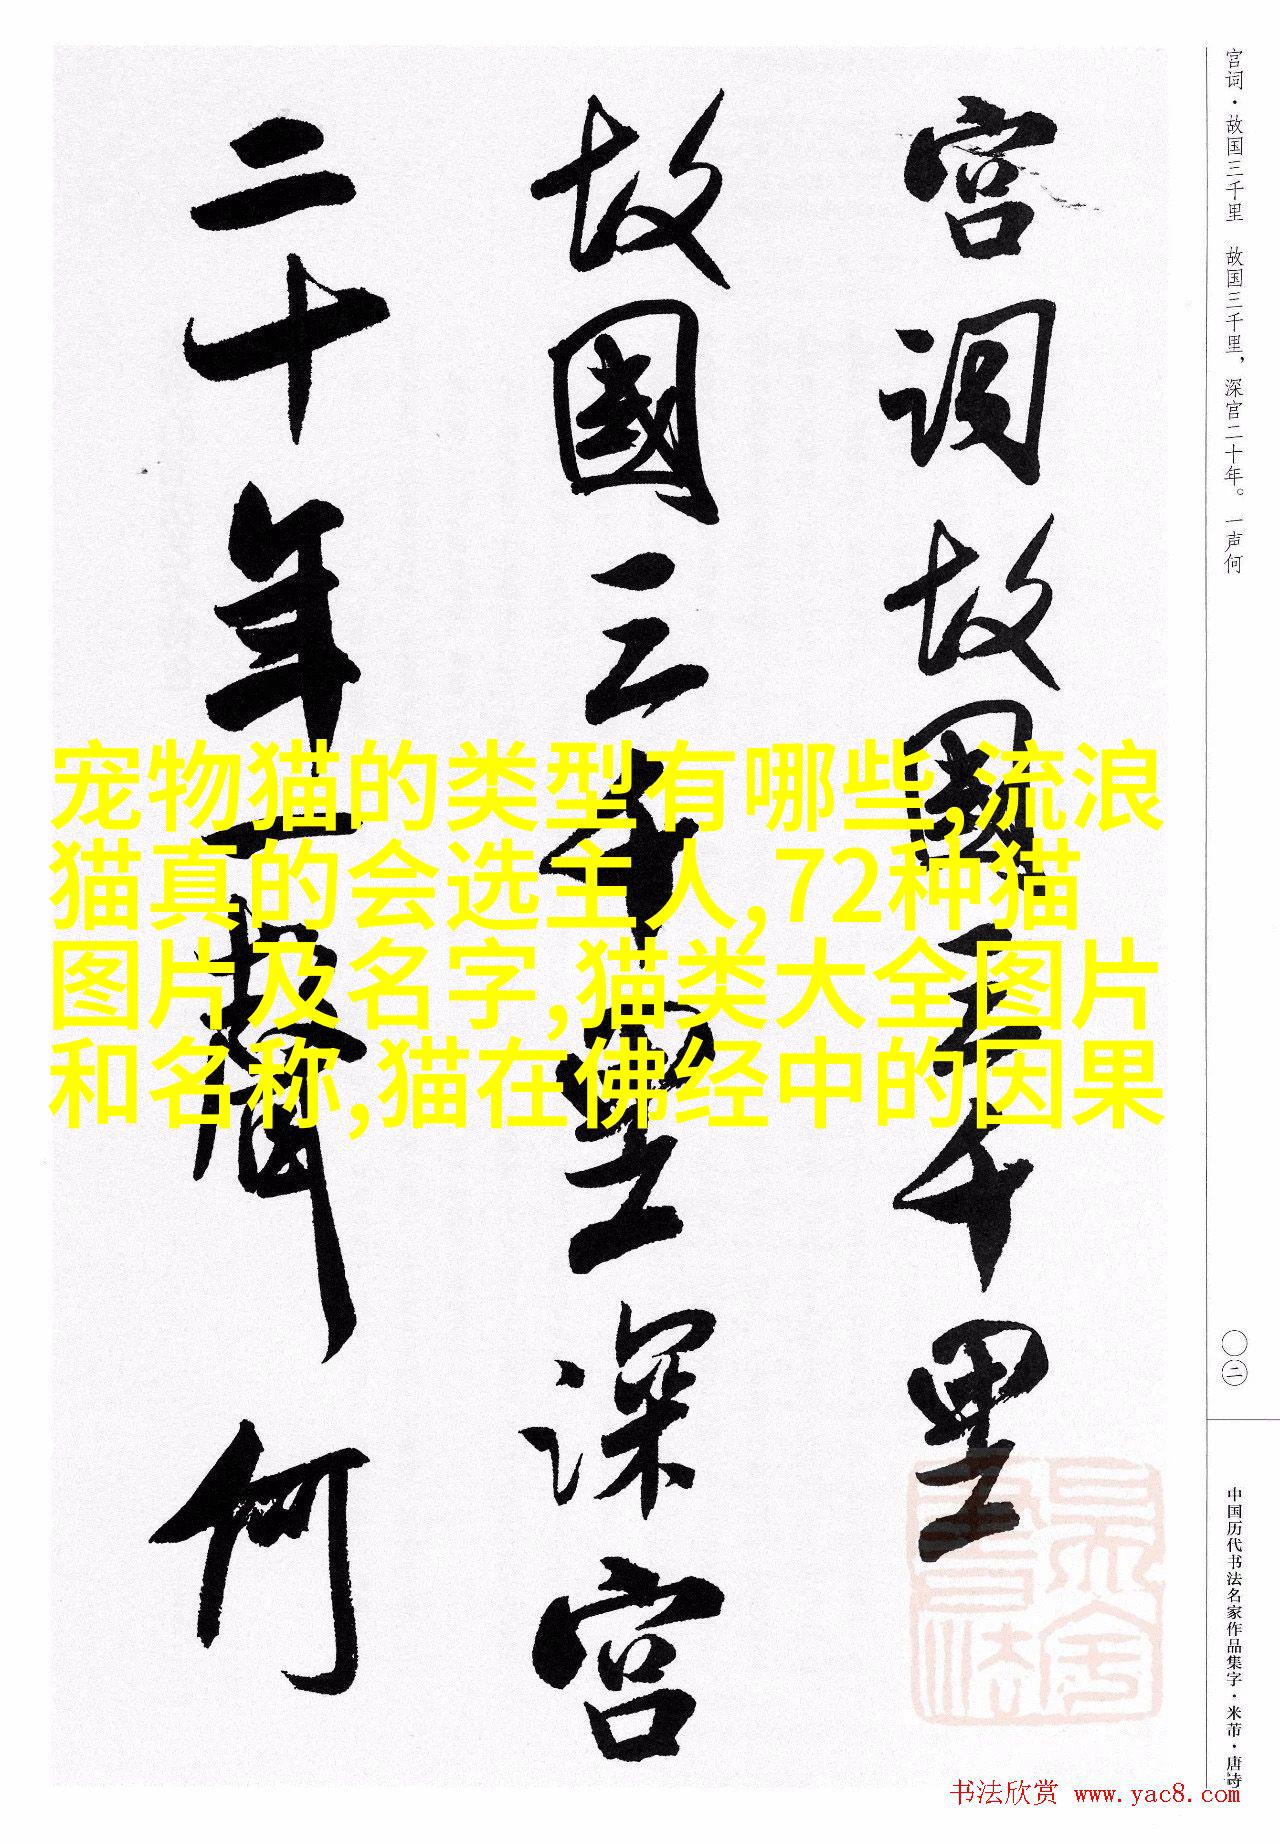 宫词·故国三千里　故国三千里，深宫二十年。一声何
宫词故國三千里
故國三千里深宫
二十年一聲何
宠物猫的类型有哪些,流浪
猫真的会选主人,72种猫
图片及名字,猫类大全图片
和名称,猫在佛经中的因果
〇二
中国历代书法名家作品集字·米芾·唐诗
书法欣赏 www.yac8.com